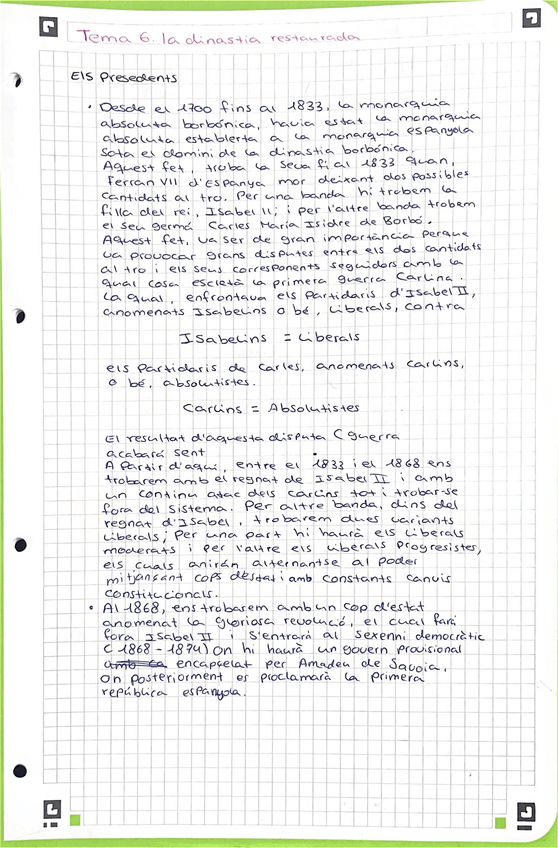 Tema 6. la dinastia restaurada
Els Presedents
• Desde el 1700 fins al 1833, la monarquia
absoluta borbónica, havia estat la monarquia
absoluta establerta a la monarquia espanyola
sota el domini de la dinastia borbónica.
Aquest fet, troba la seva fi al 1833 quan,
Ferran VII d'Espanya mor deixant dos possibles
candidats al tro. Per una banda hi trobem la
filla del rei, Isabel II; i per l'altre banda trobem
el seu germá Carles Maria Isidre de Borbó.
Aquest fet, va ser de gran importáncia perque
va provocar grans disputes entre els dos cantidats
al tro i els seus corresponents seguidors amb la
qual cosa esclatà la primera guerra Carlina.
La qual, enfrontava els Partidaris d'Isabel II,
anomenats Isabelins o bé, Liberals, contra
Isabelins = Liberals
els Partidaris de Carles, anomenats Carlins,
o bé, absolutistes.
Carlins = Absolutistes
El resultat d'aquesta disputa C guerra
acabará sent
A Partir d'aqui, entre el 1833 i el 1868 ens
trobarem amb el regnat de Isabel II i amb
un continu atac dels carlins tot i trobar-se
fora del sistema. Per altre banda, dins del
regnat d'Isabel, trobarem dues variants
Liberals; Per una part hi haurà els Liberals
moderats i per l'altre els Liberals Progresistes,
els cuals anirán alternantse al poder
mitjansant cops d'estat i amb constants canvis
constitucionals.
• Al 1868, ens trobarem amb un cop d'estat
anomenat la gloriosa revolució, el cual fará
fora Isabel II i s'entrará al Sexenni democràtic
(1868 - 1874) On hi haurà un govern provisional
amb ca encapselat per Amadeu de Savoia,
on posteriorment es proclamarà la Primera
república espanyola.